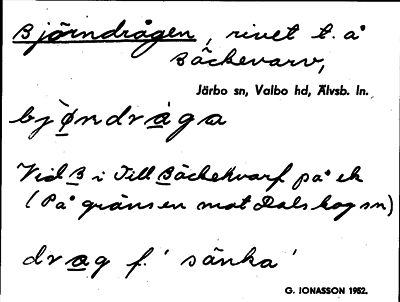 Björndrågen, rivet t. å
Bäckevarv,
Järbo sn, Valbo hd, Älvsb. ln.
bjὸndràga
Vid B i Till Bäckekvarf på ek
(På gränsen mot Dalskog sn)
drag f. 'sänka'
G. JONASSON 1952.